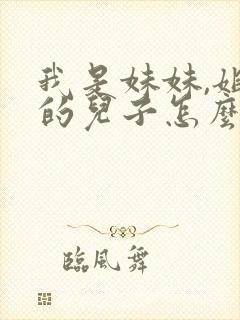 我是妹妹,姐
的兒子怎麼
臨風舞